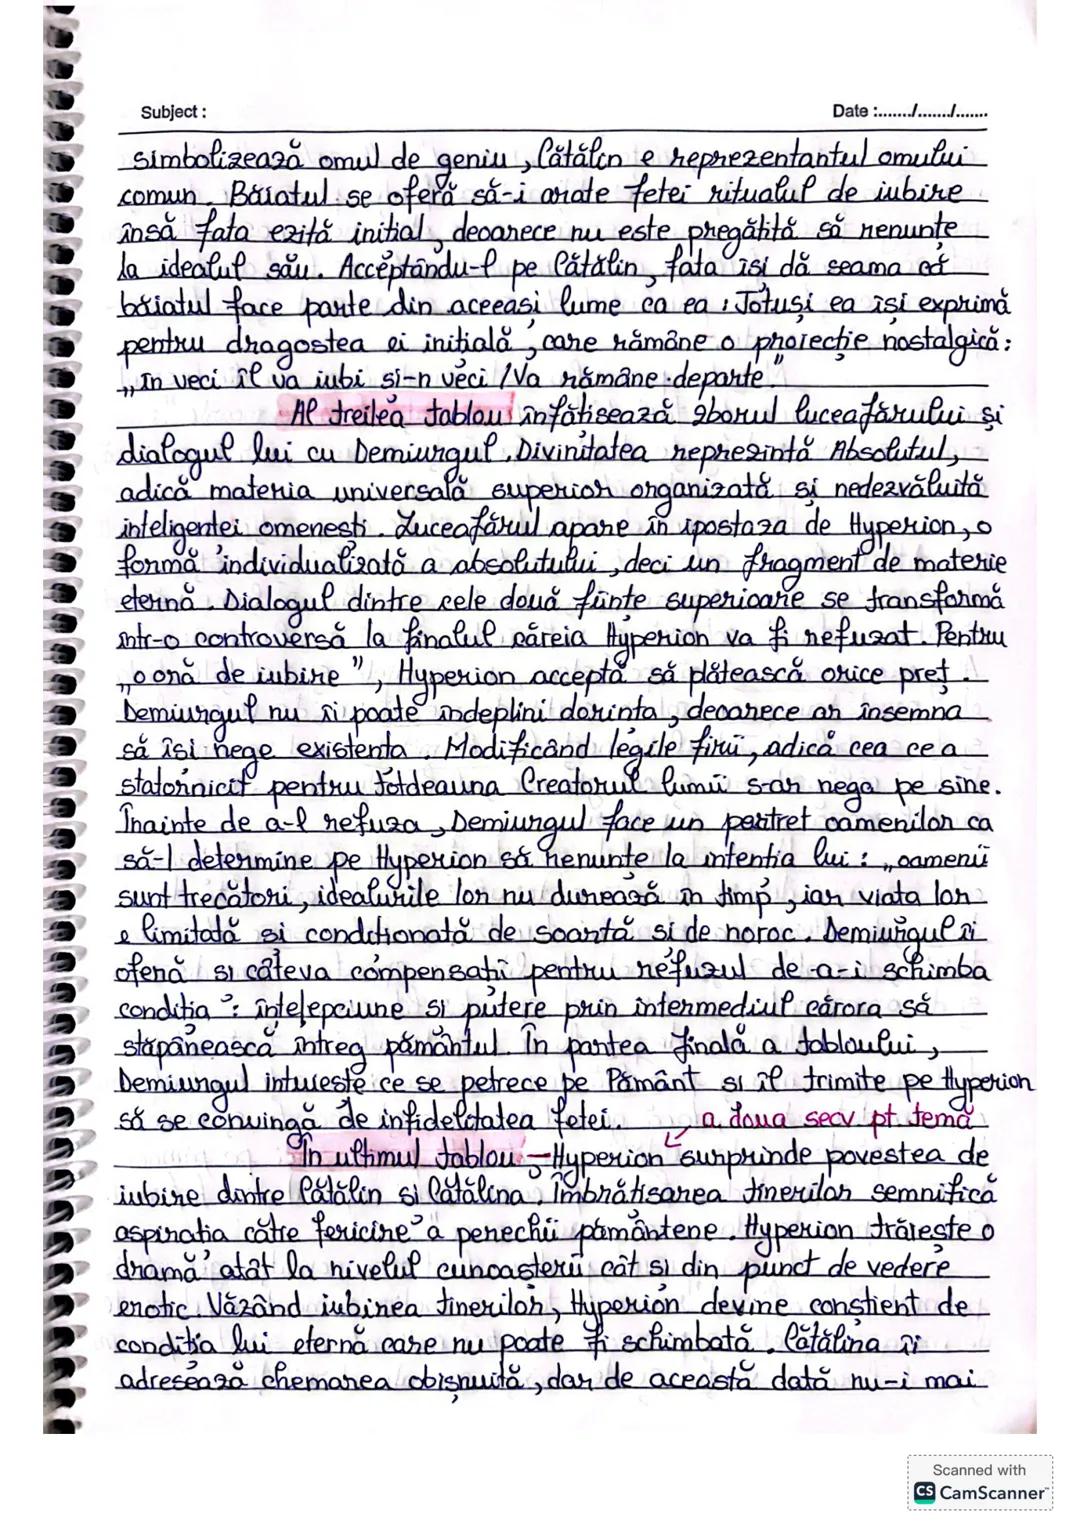 Subject :
Date :......./......./.......
simbolizează omul de geniu, Cătălin e reprezentantul omului
comun. Băiatul se oferă să-i arate fetei ritualul de iubire
însă fata ezită initial, deoarece nu este pregătită să renunțe
la idealul său. Acceptându-l pe Cătălin, fata își dă seama că
băiatul face parte din aceeași lume ca ea. Totuși ea își exprimă
pentru dragostea ei inițială, care rămâne o proiecție nostalgică:
„În veci îl va iubi și-n veci /Va rămâne departe."
Al treilea tablou înfățisează zborul luceafărului și
dialogul lui cu Demiurgul. Divinitatea reprezintă Absolutul,
adică materia universală superior organizată și nedezvăluită
inteligenței omenești. Luceafărul apare în ipostaza de Hyperion, o
formă individualizată a absolutului, deci un fragment de materie
eternă. Dialogul dintre cele două ființe superioare se transformă
într-o controversă la finalul căreia Hyperion va fi refuzat. Pentru
„o oră de iubire", Hyperion acceptă să plătească orice preț.
Demiurgul nu îi poate îndeplini dorinta, deoarece ar însemna
să își nege existenta. Modificând legile firii, adică cea ce a
statornicit pentru totdeauna Creatorul lumii s-ar nega pe sine.
Înainte de a-l refuza, Demiurgul face un portret oamenilor ca
să-l determine pe Hyperion să renunțe la intentia lui: „oamenii
sunt trecători, idealurile lor nu durează în timp, iar viata lor
e limitată și condiționată de soartă și de noroc. Demiurgul îi
oferă și câteva compensații pentru refuzul de-a-i schimba
condiția: înțelepciune și putere prin intermediul cărora să
stăpânească întreg pământul. În partea finală a tabloului,
Demiurgul intuiește ce se petrece pe Pământ și îl trimite pe Hyperion
să se convingă de infidelitatea fetei.
a doua secv pt. temă
În ultimul tablou - Hyperion surprinde povestea de
iubire dintre Cătălin și Cătălina. Îmbrățisarea tinerilor semnifică
aspirația către fericire a perechii pământene. Hyperion trăiește o
dramă atât la nivelul cunoașterii cât și din punct de vedere
erotic. Văzând iubirea tinerilor, Hyperion devine conștient de
condiția lui eternă care nu poate fi schimbată. Cătălina îi
adresează chemarea obișnuită, dar de această dată nu-i mai
Scanned with
CS CamScanner